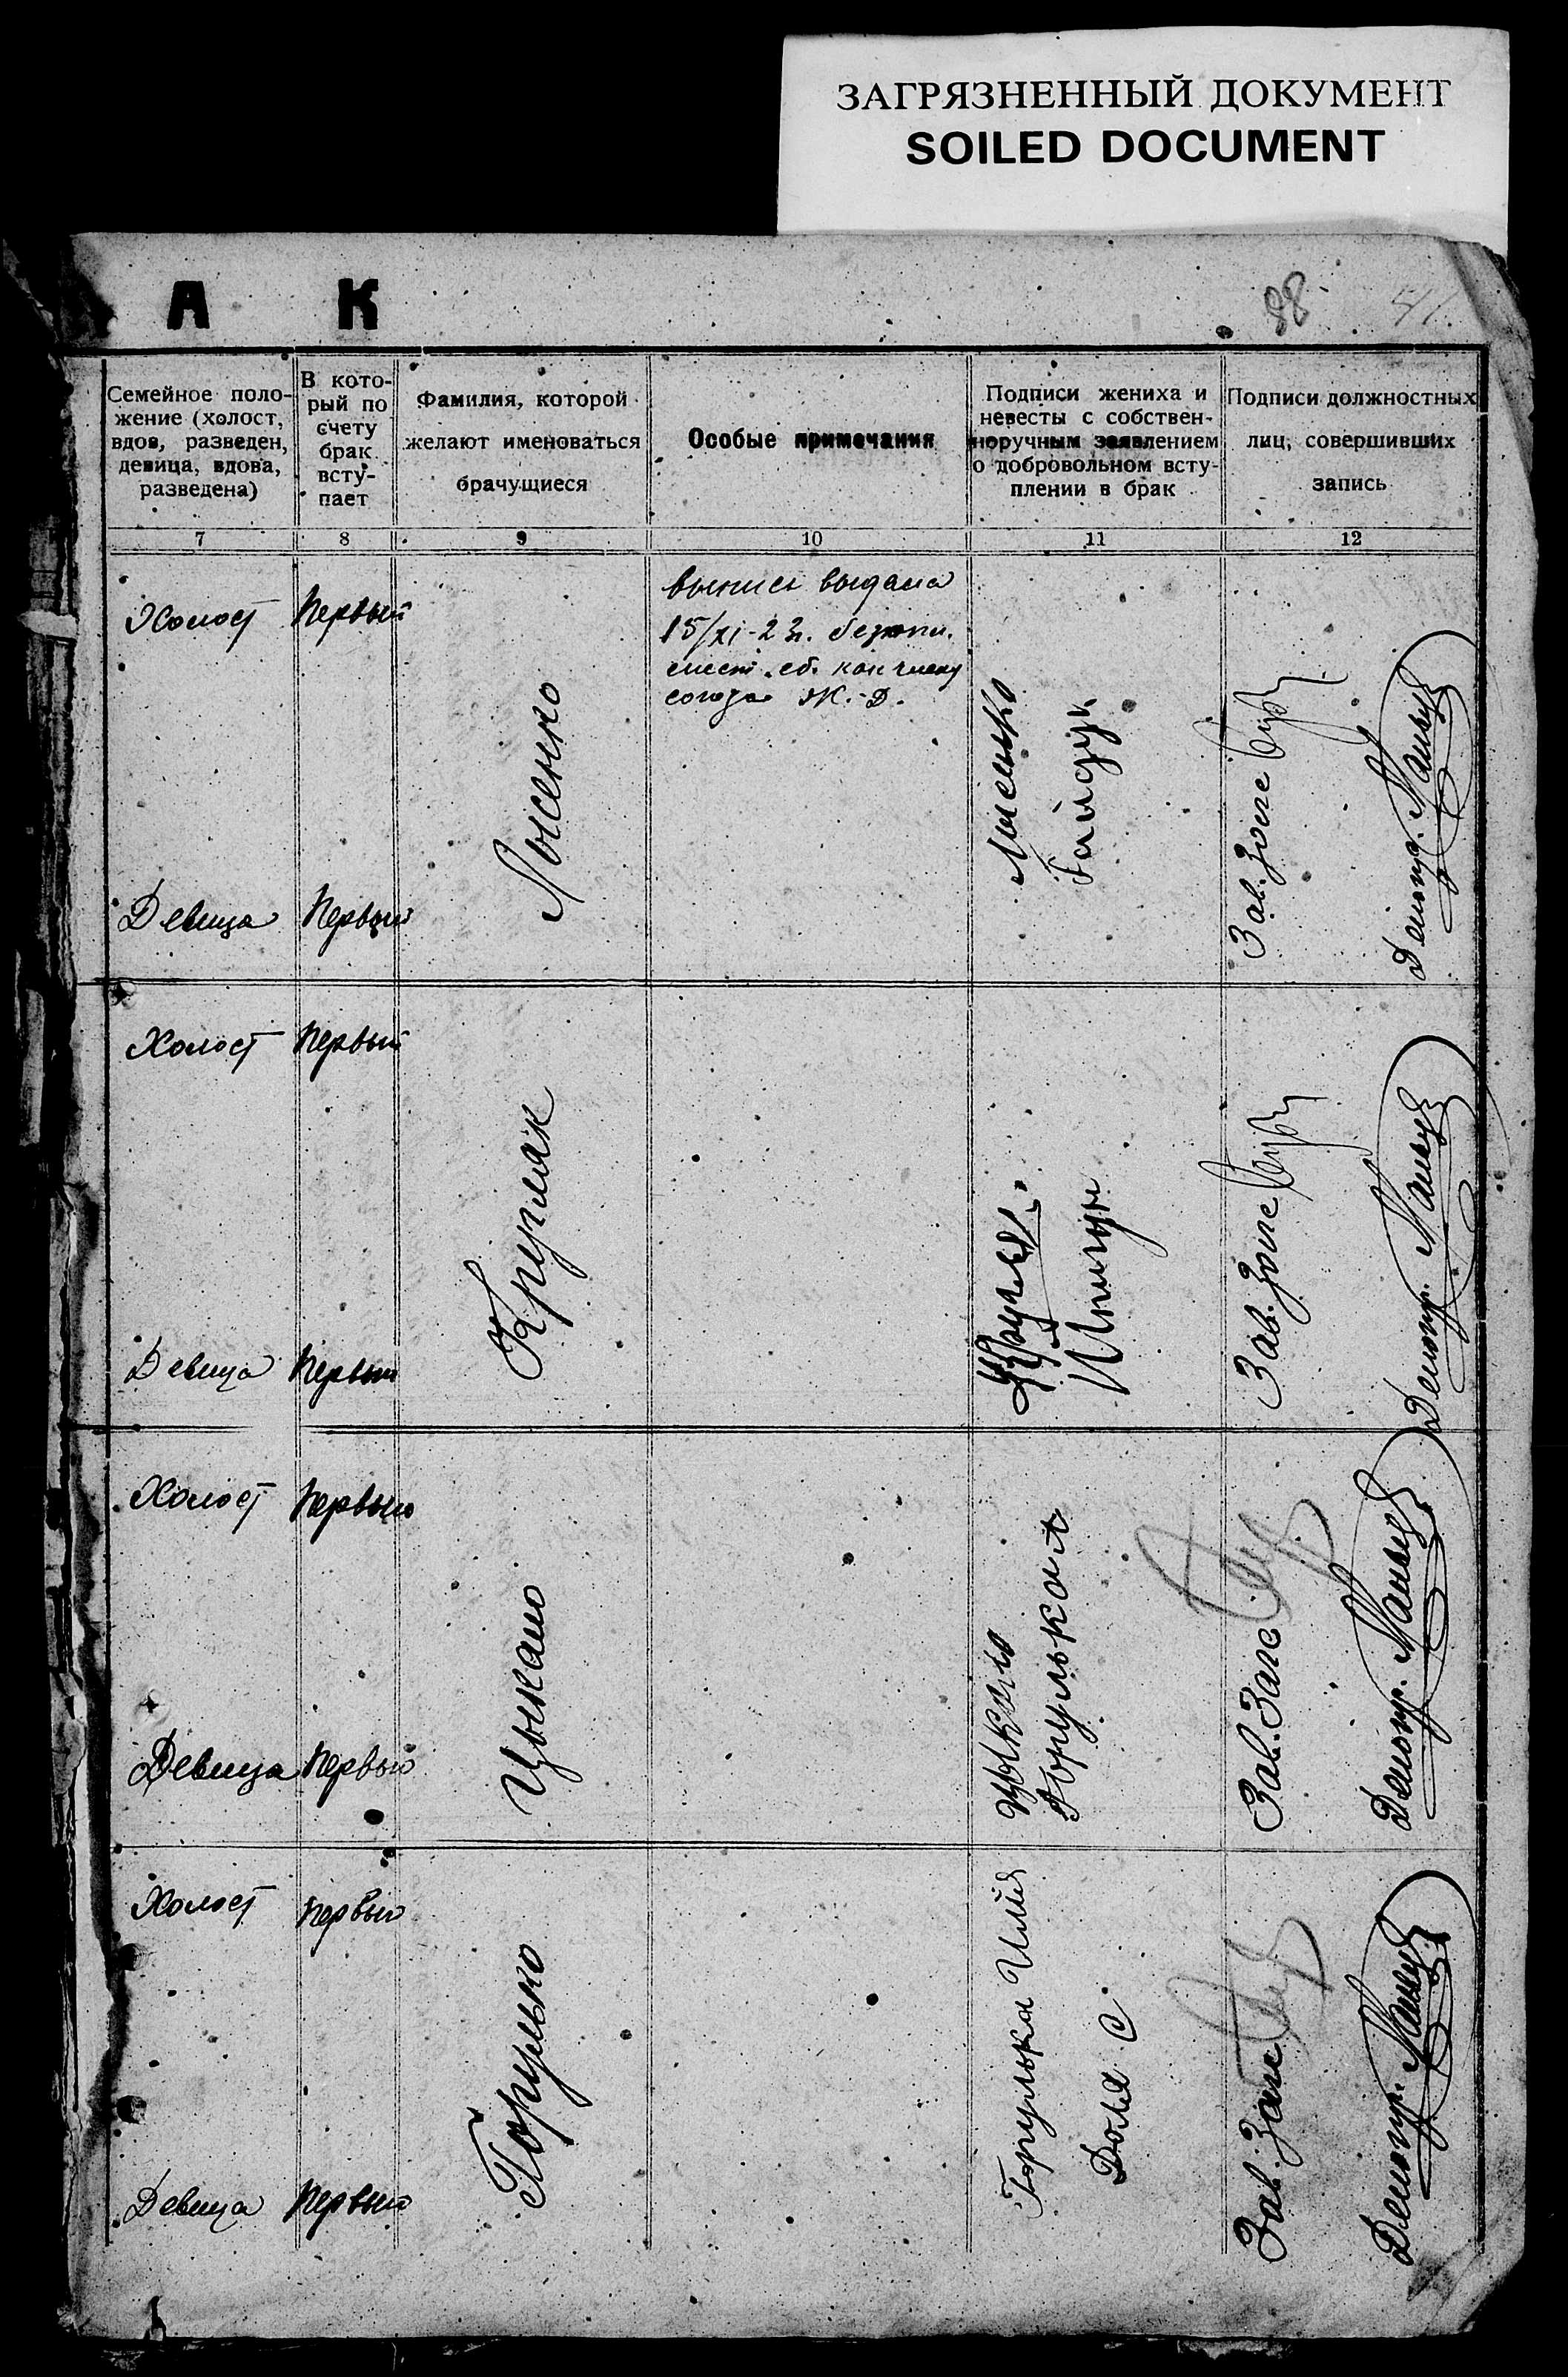 ЗАГРЯЗНЕННЫЙ ДОКУМЕНТ
SOILED DOCUMENT
А К
98
Семейное поло-
жение (холост,
вдов, разведен,
девица, вдова,
разведена)
В кото-
рый по
счету
брак
всту-
пает
Фамилия, которой
желают именоваться
брачущиеся
Особые примечания
Подписи жениха и
невесты с собствен-
норучным заявлением
о добровольном всту-
плении в брак
Подписи должностных
лиц, совершивших
запись
7 8 9 10 11 12
Холост Первый
Девица Первый
Лысенко
выпись выдана
15/XI-23.
как члену
союза Ж.-Д.
Лысенко
Гайдук
Зав. Загс
Делопр.
Холост Первый
Девица Первый
Кругляк
Шпигун
Зав. Загс
Делопр.
Холост Первый
Девица Первый
Цыкало
Цыкало
Горулько А
Зав. Загс
Делопр.
Холост Первый
Девица Первый
Горулько
Горулька Илия
Доля С
Зав. Загс
Делопр.